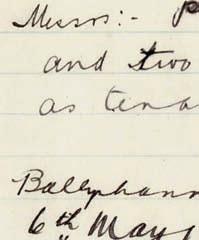 Messrs:-
and two
as tena
Ballyphann
6th May